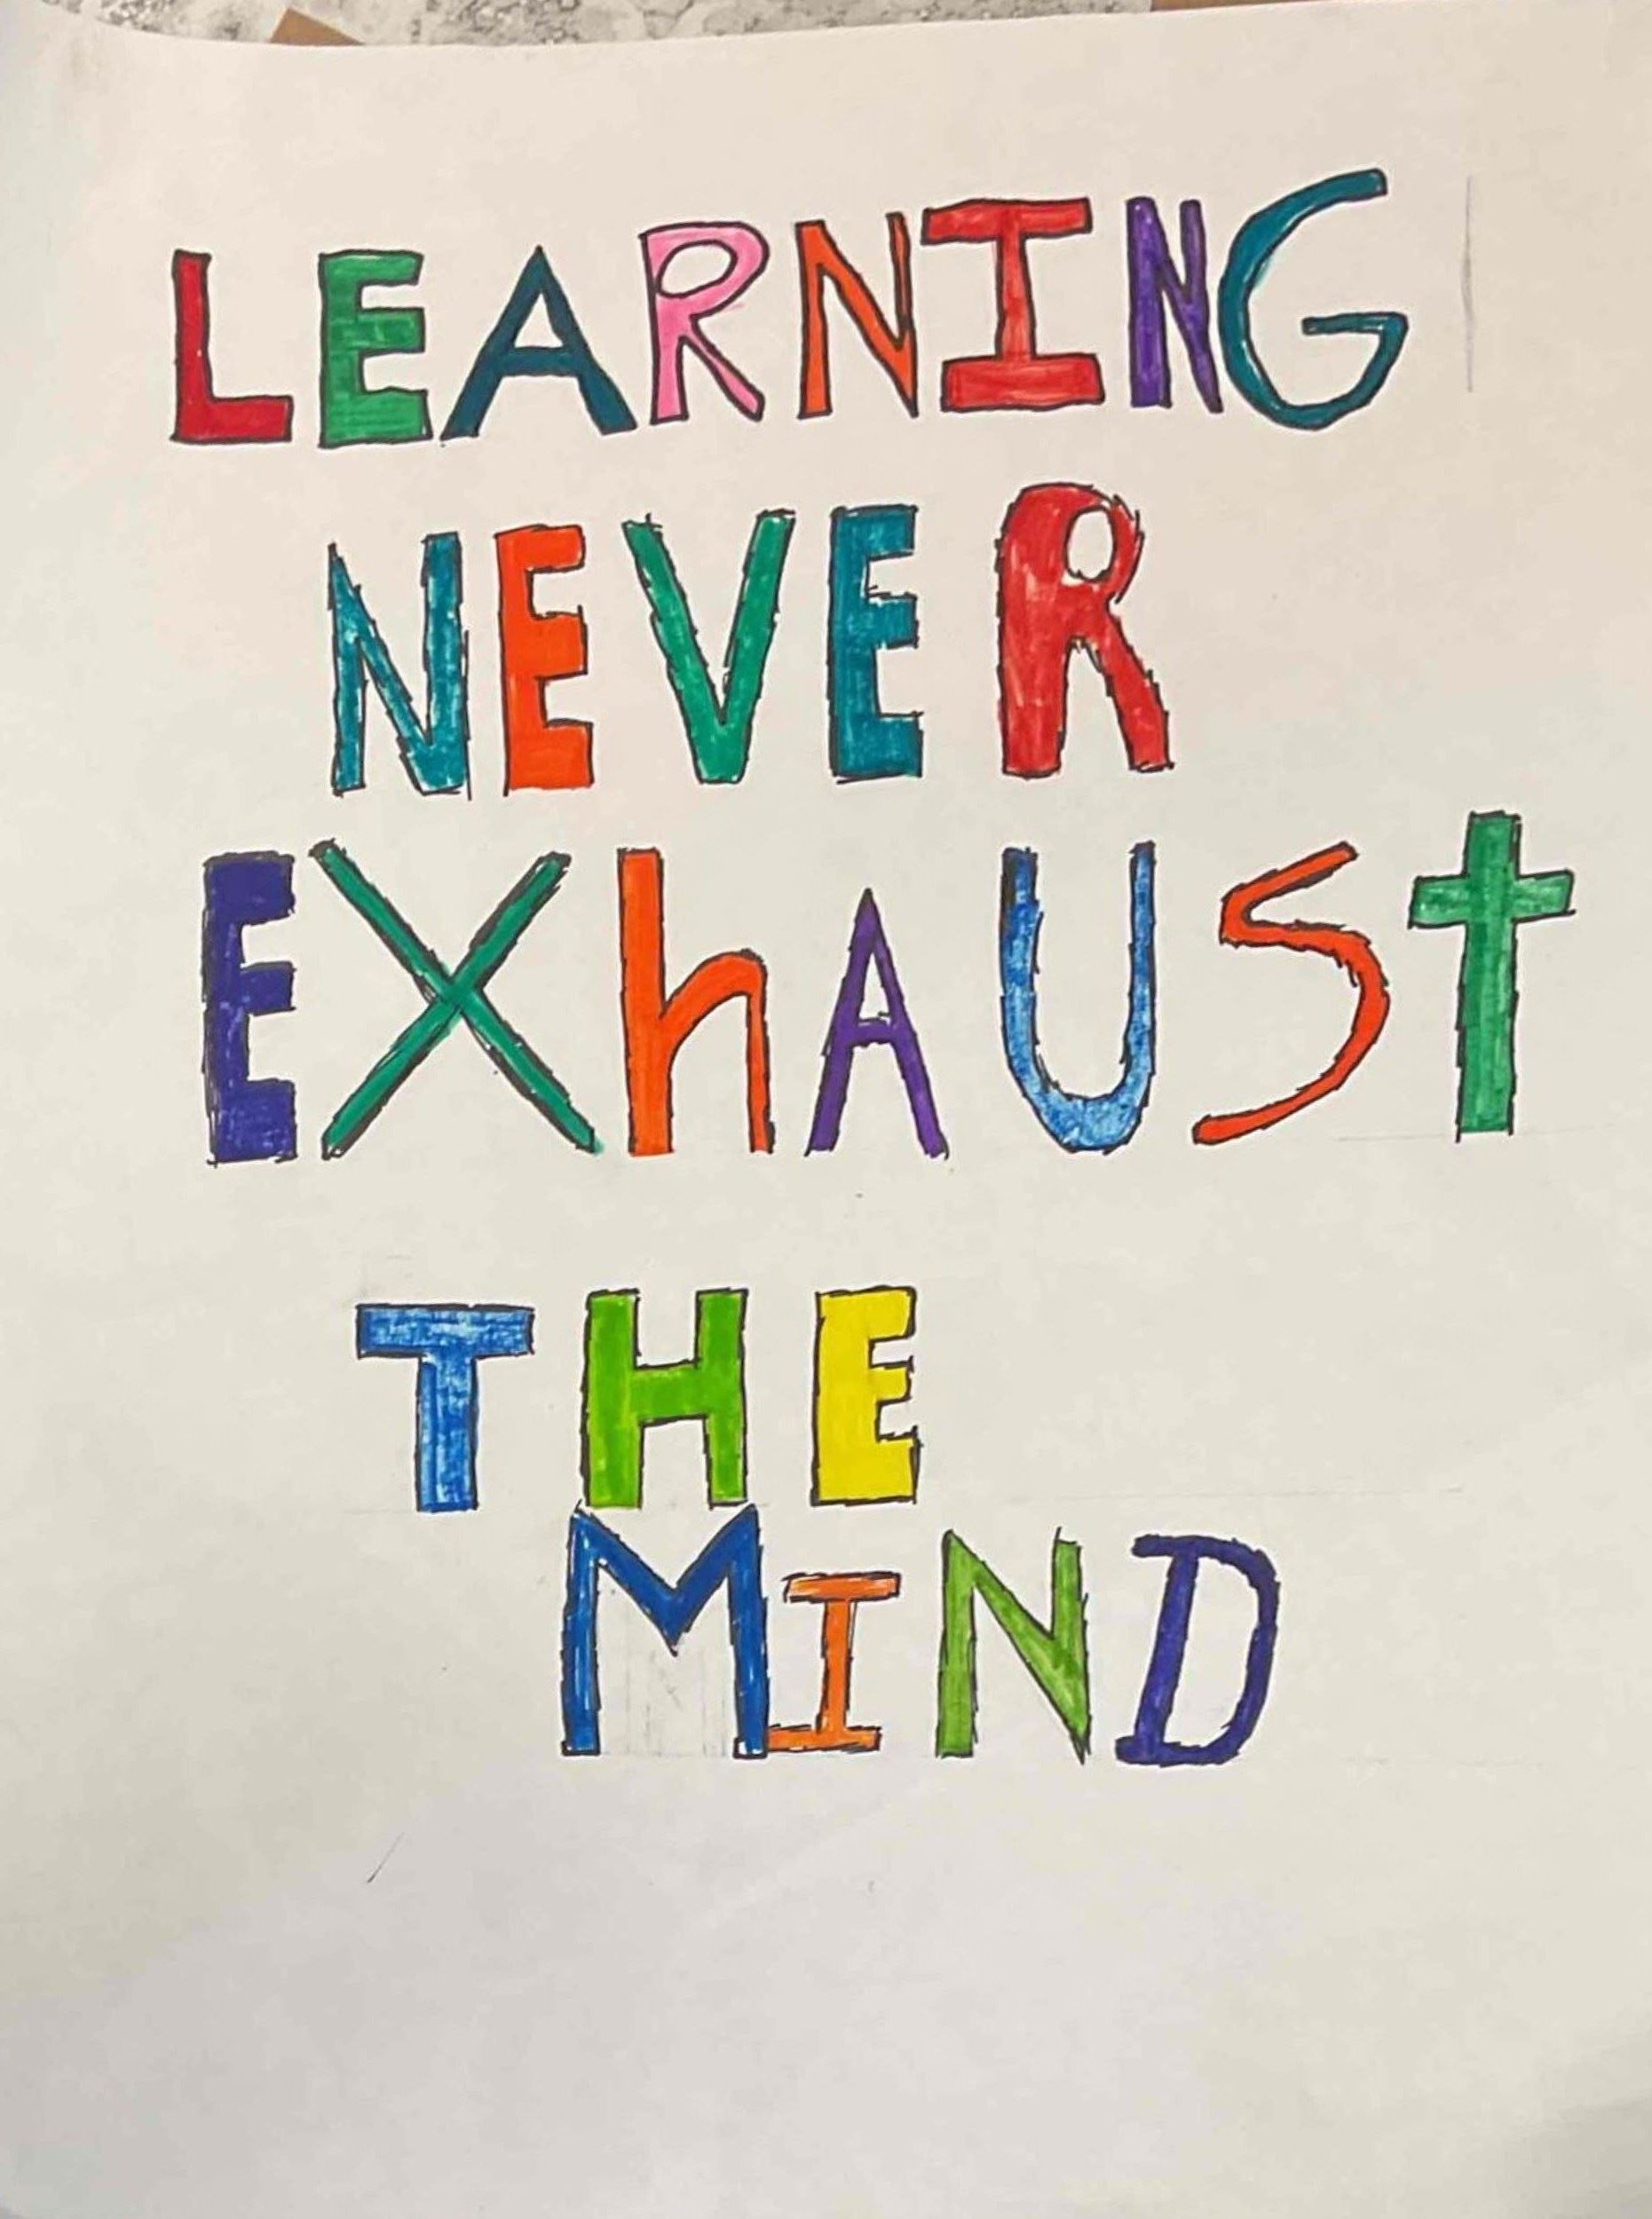 LEARNING
NEVER
EXhAUSt
THE
MIND